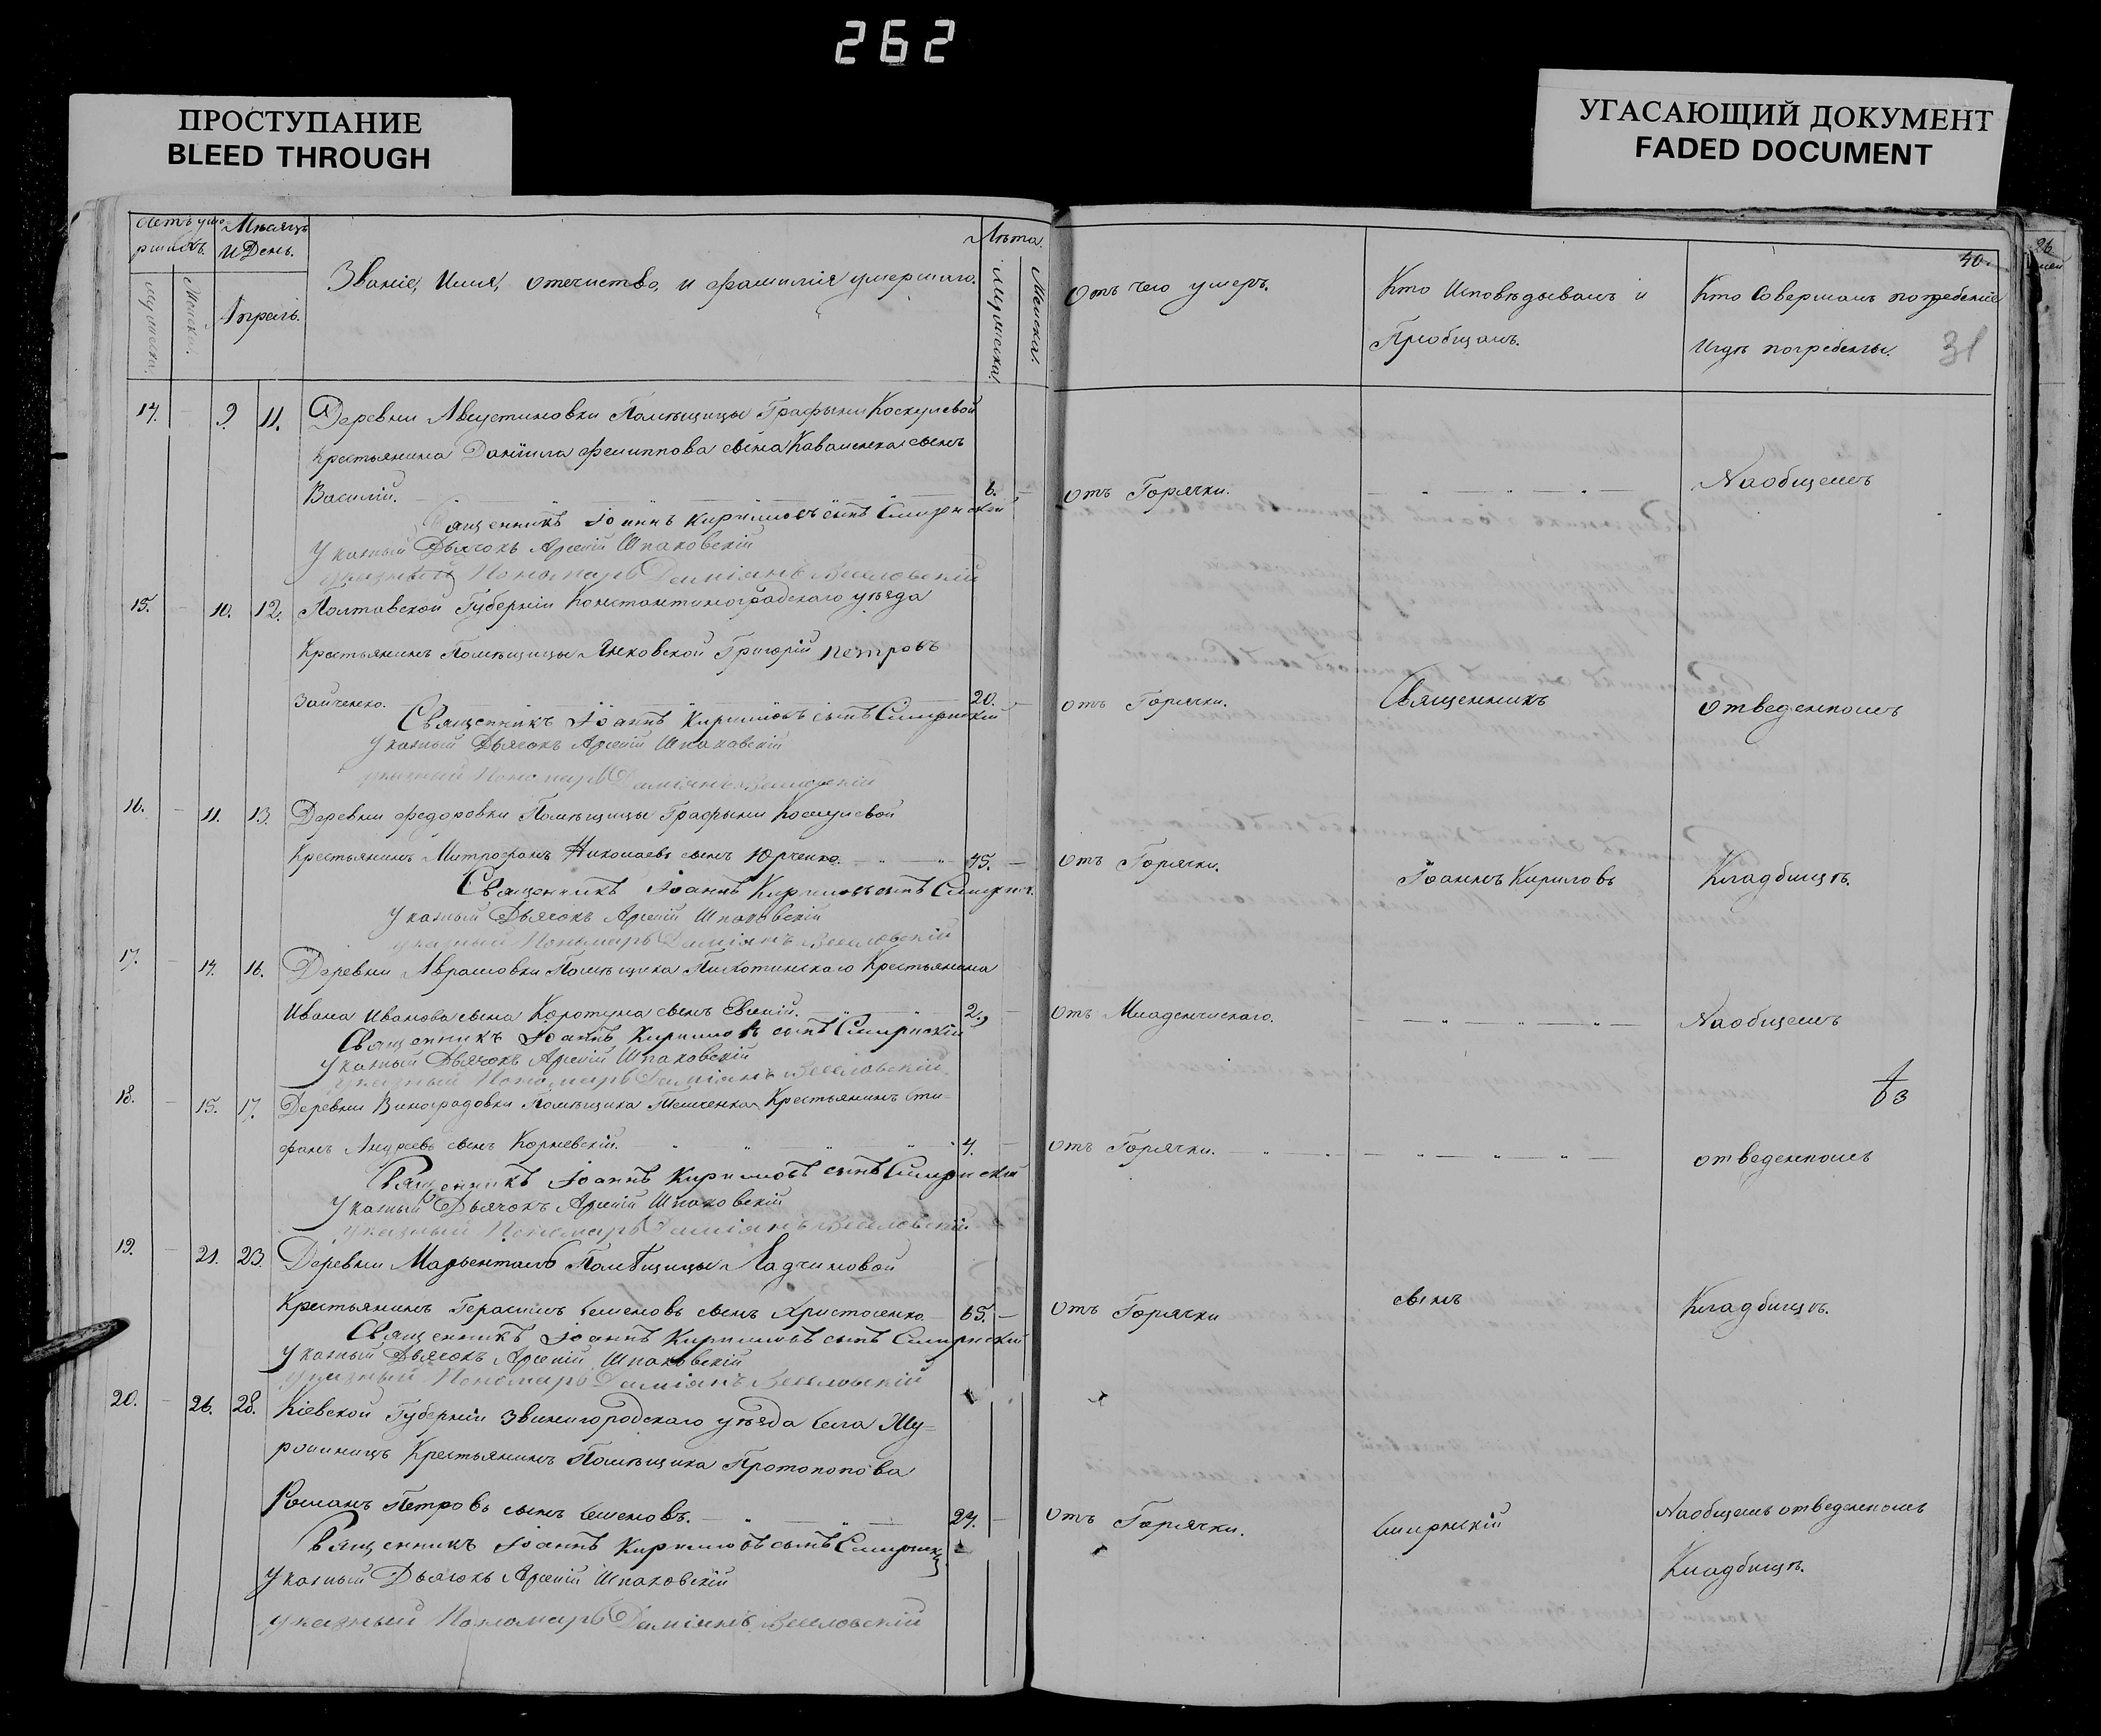 262
ПРОСТУПАНИЕ
BLEED THROUGH
УГАСАЮЩИЙ ДОКУМЕНТ
FADED DOCUMENT
Мѣсяцъ
и День.
Апрель.
Званіе, Имя, отечество, и фамилія умершаго.
Лѣта.
Мужеска.
Женска.
Отъ чего умеръ.
Кто Исповѣдывалъ и
Приобщалъ.
Кто Совершалъ погребеніе
И гдѣ погребены.
40.
31
14. 9. 11. Деревни Августиновки Помѣщицы Графыни
Крестьянина Даніила Филиппова сына сынъ
Василій. 6. Отъ Горячки. На общемъ
Священникъ Іоаннъ Кириловъ сынъ Смирнскій
Указный Дьячокъ Арсеній Шпаковскій
указный Пономарь Даміянъ Веселовскій
15. 10. 12. Полтавской Губерніи Константиноградскаго уѣзда
Крестьянинъ Помѣщицы Янковской Григорій Петровъ
Зайченко. 20. Отъ Горячки. Священникъ отведенномъ
Священникъ Іоаннъ Кириловъ сынъ Смирнскій
Указный Дьячокъ Арсеній Шпаковскій
указный Пономарь Даміянъ Веселовскій
16. 11. 13. Деревни Федоровки Помѣщицы Графыни
Крестьянинъ Митрофанъ Николаевъ сынъ Юрченко. 45. Отъ Горячки. Іоаннъ Кириловъ Кладбищѣ.
Священникъ Іоаннъ Кириловъ сынъ
Указный Дьячокъ Арсеній Шпаковскій
указный Пономарь Даміянъ Веселовскій
17. 14. 16. Деревни Аврамовки Помѣщика Крестьянина
Ивана Иванова сына Коротуна сынъ 2. Отъ Младенческаго. На общемъ
Священникъ Іоаннъ Кириловъ сынъ Смирнскій
Указный Дьячокъ Арсеній Шпаковскій
указный Пономарь Даміянъ Веселовскій
18. 15. 17. Деревни Виноградовки Помѣщика Крестьянинъ Сте-
фанъ Андреевъ сынъ Корневскій. 4. Отъ Горячки. отведенномъ
Священникъ Іоаннъ Кириловъ сынъ Смирнскій
Указный Дьячокъ Арсеній Шпаковскій
указный Пономарь Даміянъ Веселовскій
19. 21. 23. Деревни Помѣщицы Ладчиновой
Крестьянинъ Герасимъ Семеновъ сынъ Христосенко 65. Отъ Горячки сынъ Кладбищѣ.
Священникъ Іоаннъ Кириловъ сынъ Смирнскій
Указный Дьячокъ Арсеній Шпаковскій
указный Пономарь Даміянъ Веселовскій
20. 26. 28. Кіевской Губерніи Звенигородскаго уѣзда села
Крестьянинъ Помѣщика Протопопова
Романъ Петровъ сынъ Семеновъ. Отъ Горячки. Смирнскій На общемъ отведенномъ
Кладбищѣ.
Священникъ Іоаннъ Кириловъ сынъ
Указный Дьячокъ Арсеній Шпаковскій
указный Пономарь Даміянъ Веселовскій